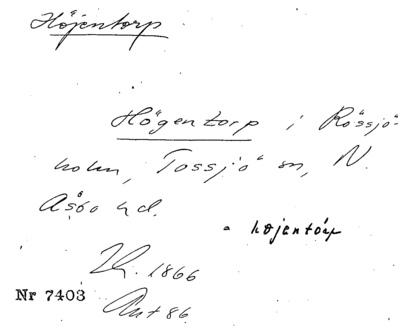 Höjentorp
Högentorp i Rössjö-
holm, Tossjö sn, N.
Åsbo hd.
højentórp
1866
Nr 7403
Ant 86